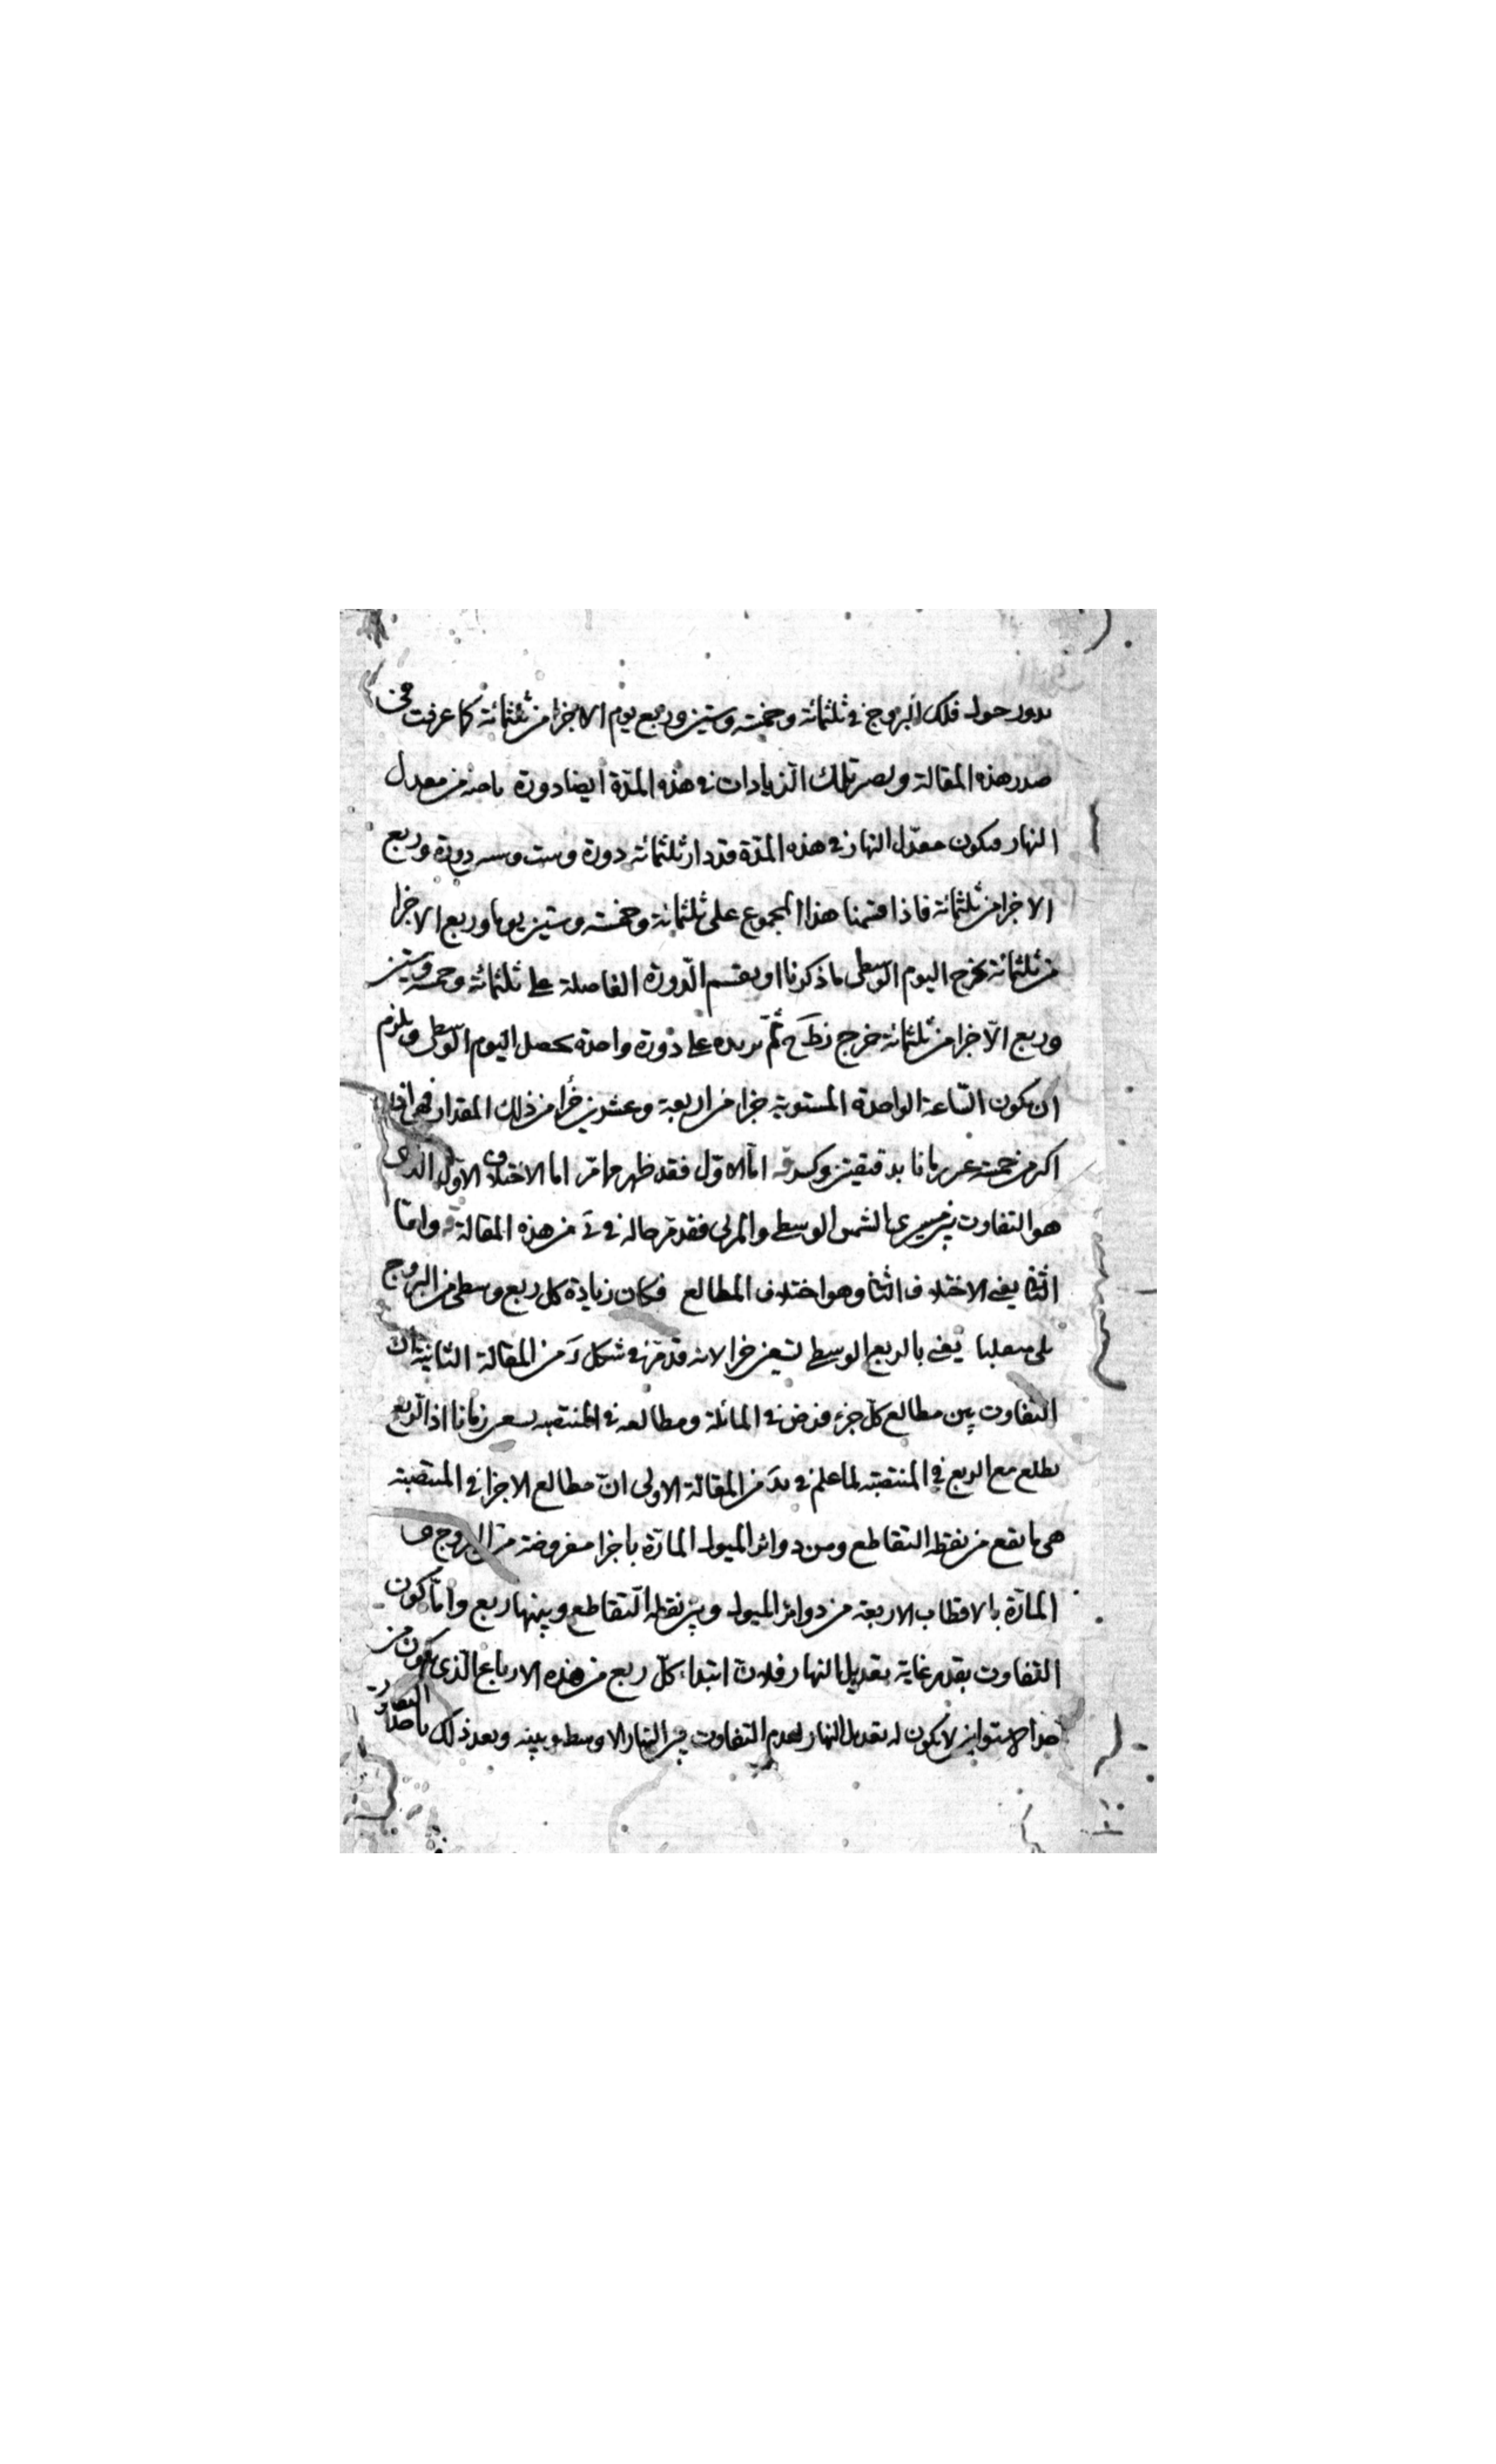 يدور حول فلك البروج في ثلثمائة وخمسة وستين وربع يوم الا جزا من ثلثمائة كما عرفت في
صدر هذه المقالة وبصر تلك الزيادات في هذه المدة ايضا دورة تامة من معدل
النهار فيكون معدل النهار في هذه المدة قد دار ثلثمائة دورة وست وستين دورة وربع
الا جزا من ثلثمائة فاذا قسمنا هذا المجموع على ثلثمائة وخمسة وستين يوما وربع الا جزا
من ثلثمائة يخرج اليوم الوسطي ما ذكرنا او يقسم الدورة الفاضلة على ثلثمائة وخمسة وستين
وربع الا جزا من ثلثمائة خرج نط ح ثم نزيده على دورة واحدة يحصل اليوم الوسطي ويلزم
ان يكون الساعة الواحدة المستوية جزا من اربعة وعشرين جزأ من ذلك المقدار فهي اذا
اكثر من خمسة عشر زمانا بدقيقتين وكسر اما الاول فقد ظهر مما مر اما الاختلاف الاول الذي
هو التفاوت بين مسيري الشمس الوسطي والمرئي فقد مر حاله في من هذه المقالة واما
الثاني يعني الاختلاف الثاني وهو اختلاف المطالع فكان زيادة كل ربع وسطي من البروج
يلي منقلبا يعني بالربع الوسطي تسعين جزا لانه قد مر في شكل من المقالة الثانية ان
التفاوت بين مطالع كل جزء فرض في المائلة ومطالعه في المنتصبة تسعين زمانا اذ الربع
يطلع مع الربع في المنتصبة لما علم في من المقالة الاولى ان مطالع الاجزا في المنتصبة
هي ما يقع من نقطة التقاطع وبين دوائر الميول المارة باجزا مفروضة من البروج و
المارة بالاقطاب الاربعة من دوائر الميول وبين نقطة التقاطع وبينها ربع واما كون
التفاوت بقدر غاية تعديل النهار فلان ابتداء كل ربع من هذه الارباع الذي يكون من
احد الاستوائين لا يكون له تعديل النهار لعدم التفاوت بين النهار الاوسط وبينه وبعد ذلك ياخذ